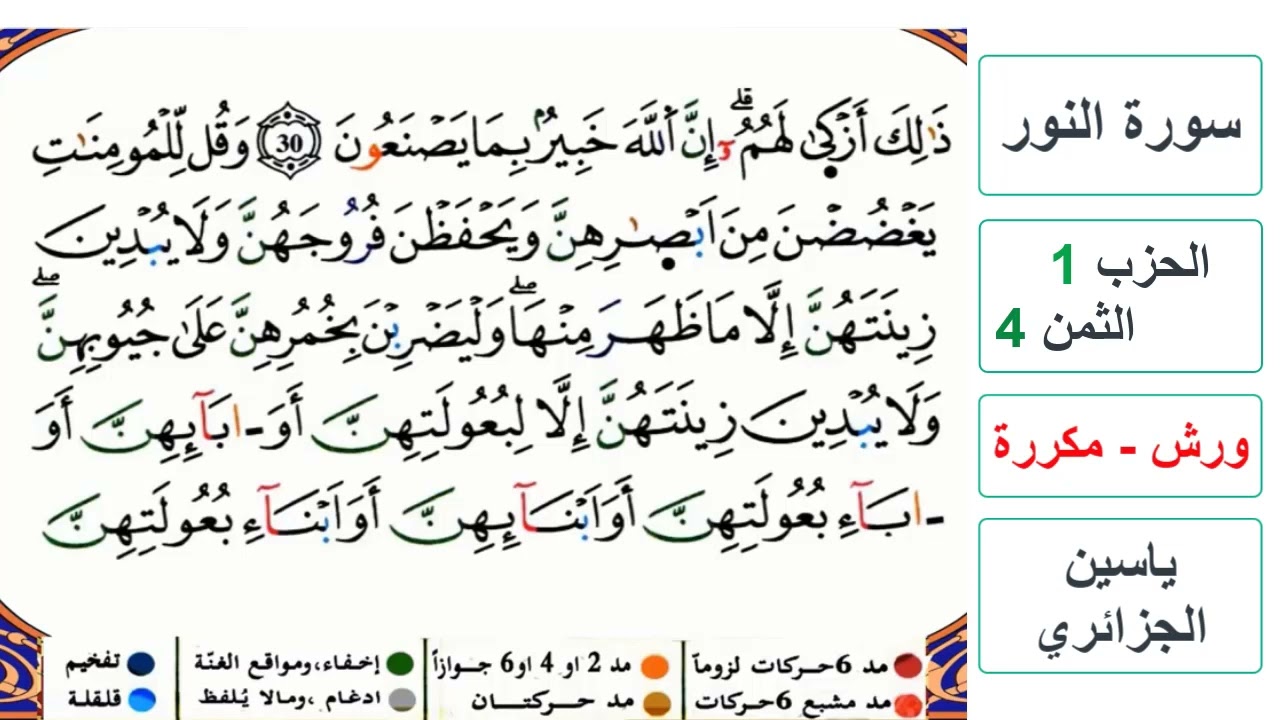 ذَٰلِكَ أَزْكَىٰ لَهُمُۥٓۖ إِنَّ اَ۬للَّهَ خَبِيرُۢ بِمَا يَصْنَعُونَ 30 وَقُل لِّلْمُومِنَٰتِ
يَغْضُضْنَ مِنَ اَبْصٰ۪رِهِنَّ وَيَحْفَظْنَ فُرُوجَهُنَّ وَلَا يُبْدِينَ
زِينَتَهُنَّ إِلَّا مَا ظَهَرَ مِنْهَاۖ وَلْيَضْرِبْنَ بِخُمُرِهِنَّ عَلَىٰ جُيُوبِهِنَّۖ
وَلَا يُبْدِينَ زِينَتَهُنَّ إِلَّا لِبُعُولَتِهِنَّ أَوَ ـ ابَآئِهِنَّ أَوَ
ـ ابَآءِ بُعُولَتِهِنَّ أَوَ اَبْنَآئِهِنَّ أَوَ اَبْنَآءِ بُعُولَتِهِنَّ
سورة النور
الحزب 1
الثمن 4
ورش - مكررة
ياسين
الجزائري
مد 6 حركات لزوماً
مد 2 او 4 او 6 جوازاً
إخفاء، ومواقع الغنّة
تفخيم
مد مشبع 6 حركات
مد حركتان
ادغام، ومالا يُلفظ
قلقلة